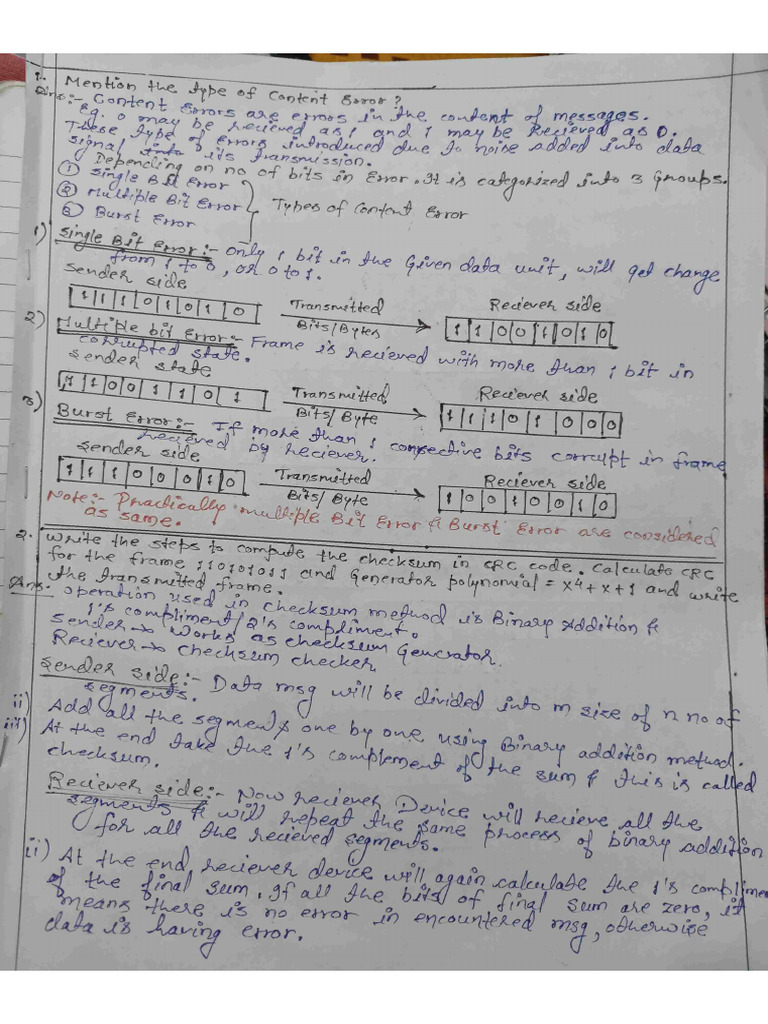 1. Mention the type of Content Error?
Ans:- Content Errors are errors in the content of messages.
Eg. 0 may be recieved as 1 and 1 may be Recieved as 0.
These type of Errors introduced due to noise added into data
signal into its transmission.
Depending on no of bits in Error. It is categorized into 3 Groups.
① Single Bit Error
② Multiple Bit Error
③ Burst Error
Types of Content Error
1) Single Bit Error:- Only 1 bit in the Given data unit, will get change
from 1 to 0, or 0 to 1.
Sender side
1 1 1 0 1 0 1 0
Transmitted
Bits/Bytes
Reciever side
1 1 0 0 1 0 1 0
2) Multiple bit Error:- Frame is recieved with more than 1 bit in
corrupted state.
Sender state
1 1 0 0 1 1 0 1
Transmitted
Bits/Byte
Reciever side
1 1 1 0 1 0 0 0
3) Burst Error:- If more than 1 consective bits corrupt in frame
recieved by reciever.
Sender side
1 1 1 0 0 0 1 0
Transmitted
Bits/Byte
Reciever side
1 0 0 1 0 0 1 0
Note:- Practically multiple Bit Error & Burst Error are considered
as same.
2. Write the steps to compute the checksum in CRC code. Calculate CRC
for the frame 110101011 and Generator polynomial = x4+x+1 and write
the transmitted frame.
Ans. operation used in checksum method is Binary Addition &
1's compliment/2's compliment.
Sender → Works as checksum Generator
Reciever → checksum checker
Sender side:- Data msg will be divided into m size of n no of
segments.
ii) Add all the segments one by one using Binary addition method.
iii) At the end take the 1's complement of the sum & this is called
checksum.
Reciever side:- Now reciever Device will recieve all the
segments & will repeat the same process of binary addition
for all the recieved segments.
ii) At the end reciever device will again calculate the 1's complimen
of the final sum. If all the bits of final sum are zero, it
means there is no error in encountered msg, otherwise
data is having error.